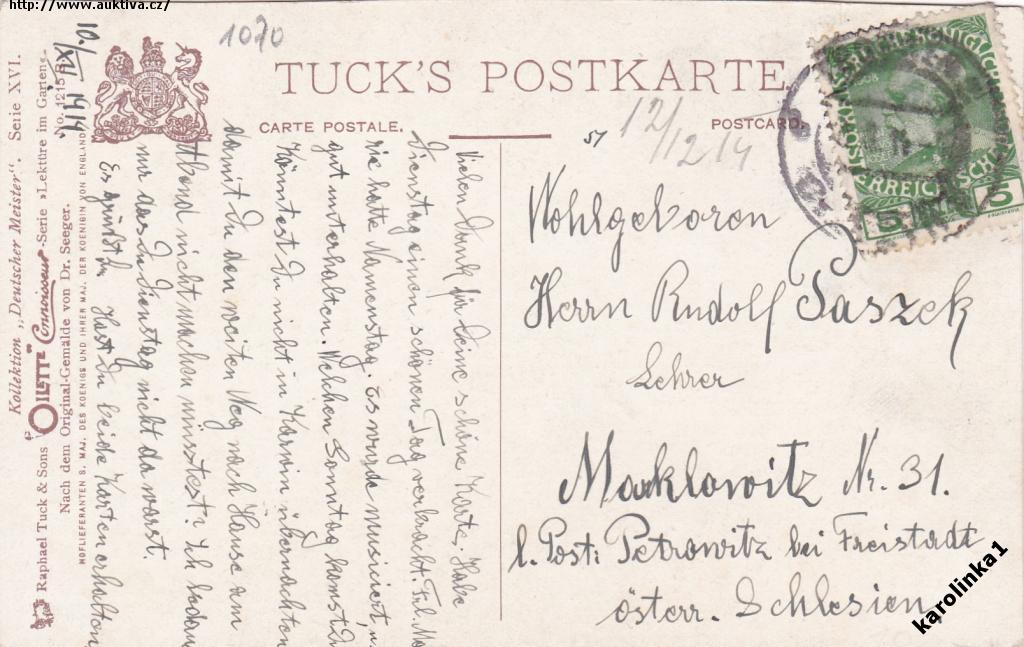 http://www.auktiva.cz/
1070
TUCK'S POSTKARTE
CARTE POSTALE.
POSTCARD.
51
12/12 14
ÖSTERREICHISCHE
5
5
Kollektion „Deutscher Meister". Serie XVI.
Raphael Tuck & Sons OILETTE Connoisseur-Serie »Lektüre im Garten«
No. 1215
Nach dem Original-Gemälde von Dr. Seeger.
HOFLIEFERANTEN S. MAJ. DES KOENIGS UND IHRER MAJ. DER KOENIGIN VON ENGLAND
10./XII. 1914.
Vielen Dank für Deine schöne Karte. Habe
Dienstag einen schönen Tag verbracht. Frl. Ma
rie hatte Namenstag. Es wurde musiciert, u.
gut unterhalten. Welchen Sonntag kommst Du
Könntest Du nicht in Karwin übernachten
damit Du den weiten Weg nach Hause am
Abend nicht machen müsstest? Ich
mir das Du Dienstag nicht da warst.
Es grüßt Dich Hast Du beide Karten erhalten
Wohlgeboren
Herrn Rudolf Paszek
Lehrer
Marklowitz Nr. 31.
l. Post: Petrowitz bei Freistadt
österr. Schlesien
karolinka1